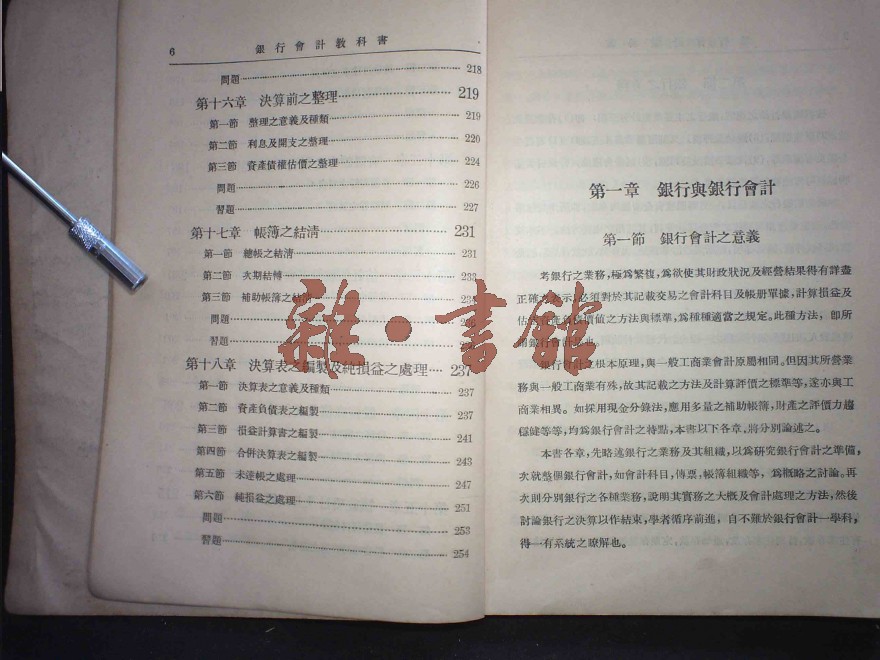 6 銀行會計教科書
問題 218
第十六章 決算前之整理 219
第一節 整理之意義及種類 219
第二節 利息及開支之整理 220
第三節 資產債權估價之整理 224
問題 226
習題 227
第十七章 帳簿之結清 231
第一節 總帳之結清 231
第二節 次期結轉 233
第三節 補助帳簿之結清
問題
習題
第十八章 決算表之編製及純損益之處理 237
第一節 決算表之意義及種類 237
第二節 資產負債表之編製 237
第三節 損益計算書之編製 241
第四節 合併決算表之編製 243
第五節 未達帳之處理 247
第六節 純損益之處理 251
問題 253
習題 254
雜·書館
第一章 銀行與銀行會計
第一節 銀行會計之意義
考銀行之業務,極爲繁複,爲欲使其財政狀況及經營結果得有詳盡
正確之表示,必須對於其記載交易之會計科目及帳册單據,計算損益及
估價値之方法與標準,爲種種適當之規定。此種方法, 卽所
銀行會計是也。
銀行會計之根本原理,與一般工商業會計原屬相同。但因其所營業
務與一般工商業有殊,故其記載之方法及計算評價之標準等,遂亦與工
商業相異。如採用現金分錄法,應用多量之補助帳簿,財產之評價力趨
穩健等等,均爲銀行會計之特點,本書以下各章,將分別論述之。
本書各章,先略述銀行之業務及其組織,以爲研究銀行會計之準備,
次就整個銀行會計,如會計科目,傳票,帳簿組織等, 爲概略之討論。再
次則分別銀行之各種業務,說明其實務之大概及會計處理之方法,然後
討論銀行之決算以作結束,學者循序前進, 自不難於銀行會計一學科,
得一有系統之瞭解也。